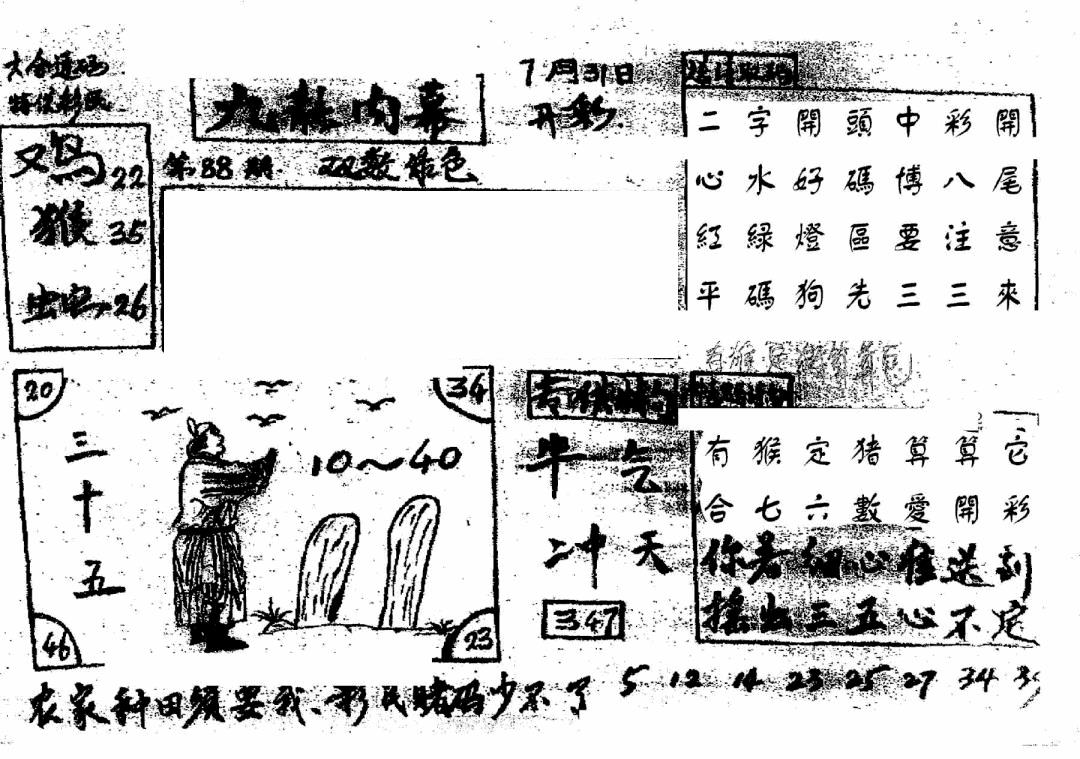 大合連码
九龍内幕
7月31日
开彩.
第88期. 双数 绿色
鸡 22
猴 35
虫 26
二字開頭中彩開
心水好碼博八尾
紅綠燈區要注意
平碼狗先三三來
20
34
三十五
10～40
46
23
牛气
冲天
347
有猴定猪算算它
合七六數愛開彩
你若细心住送到
摇出三五心不定
农家种田须要我、彩民赌码少不了
5 12 14 23 25 27 34